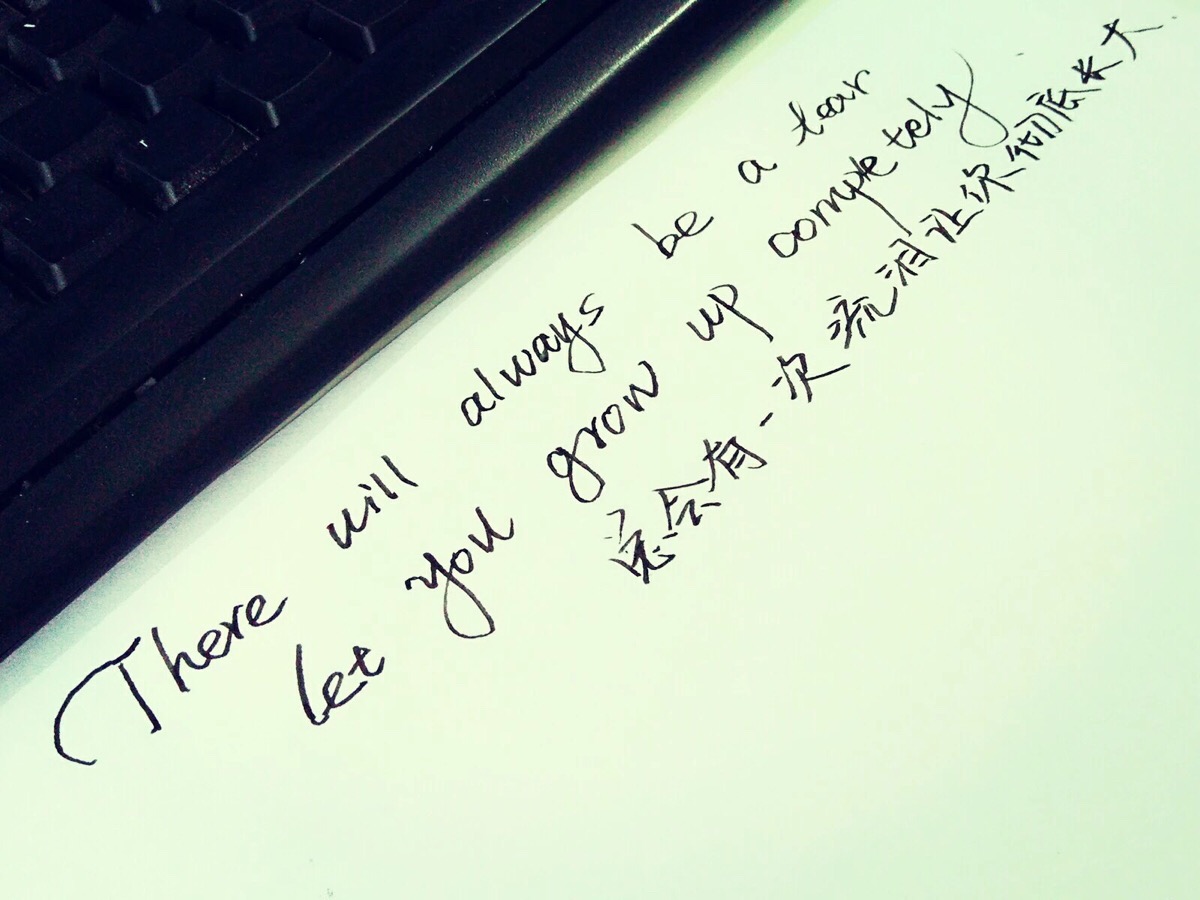 There will always be a tear
let you grow up completely
总会有一次流泪让你彻底长大